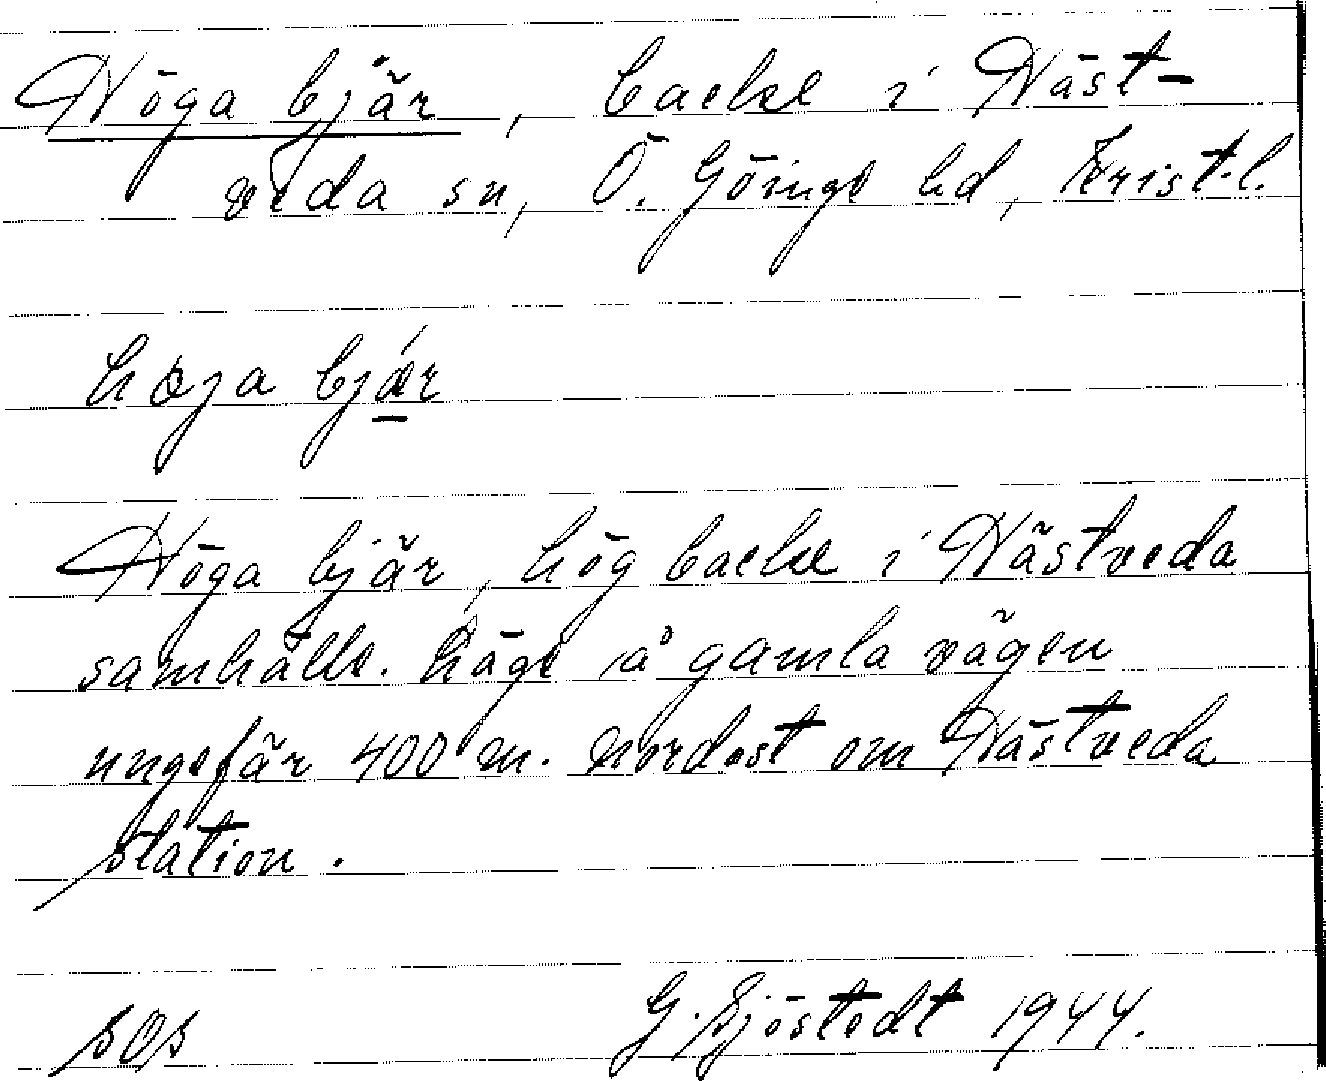 Höga bjär, backe i Häst-
veda sn, Ö. Göinge hd, Krist.l.
høja bjǽr
Höga bjär, hög backe i Hästveda
samhälle. Läge å gamla vägen
ungefär 400 m. nordost om Hästveda
station.
SOS G. Sjöstedt 1944.